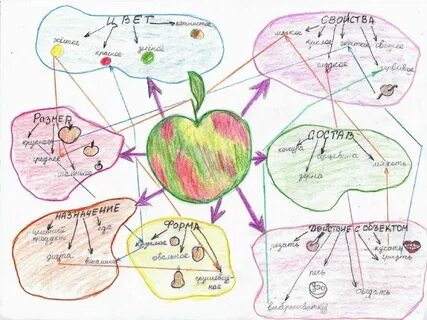 ЦВЕТ
жёлтое
красное
зелёное
пятнистое
СВОЙСТВА
мягкое
кислое
жёсткое
сладкое
червивое
РАЗМЕР
крупное
среднее
маленькое
СОСТАВ
кожура
сердцевина
мякоть
зерна
НАЗНАЧЕНИЕ
еда
диета
витамины
ФОРМА
круглое
овальное
грушевид-
ное
ДЕЙСТВИЕ С ОБЪЕКТОМ
резать
кусать
грызть
есть
съедать
выбрасывать